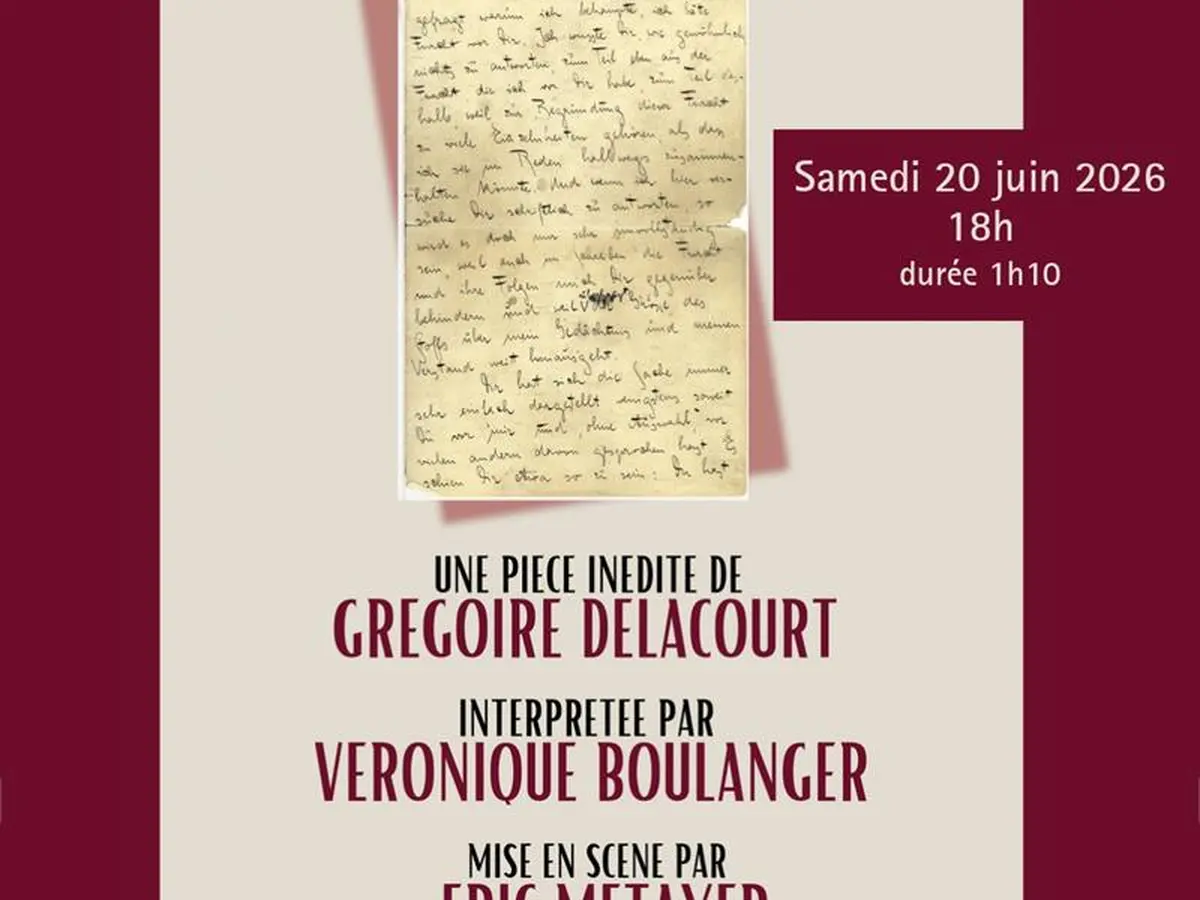 gefragt warum ich behaupte, ich hätte
Furcht vor Dir. Ich wusste Dir, wie gewöhnlich
nichts zu antworten, zum Teil eben aus der
Furcht die ich vor Dir habe, zum Teil des-
halb weil zur Begründung dieser Furcht
zu viele Einzelnheiten gehören, als dass
ich sie im Reden halbwegs zusammen-
halten könnte. Und wenn ich hier ver-
suche Dir schriftlich zu antworten, so
wird es doch nur sehr unvollständig
sein, weil auch im Schreiben die Furcht
und ihre Folgen mich Dir gegenüber
behindern und weil Grösse des
Stoffs über mein Gedächtnis und meinen
Verstand weit hinausgeht.
Dir hat sich die Sache immer
sehr einfach dargestellt, wenigstens soweit
Du vor mir und, ohne Auswahl, vor
vielen andern davon gesprochen hast. Es
schien Dir etwa so zu sein: Du hast
Samedi 20 juin 2026
18h
durée 1h10
UNE PIECE INEDITE DE
GREGOIRE DELACOURT
INTERPRETEE PAR
VERONIQUE BOULANGER
MISE EN SCENE PAR
ERIC METAYER